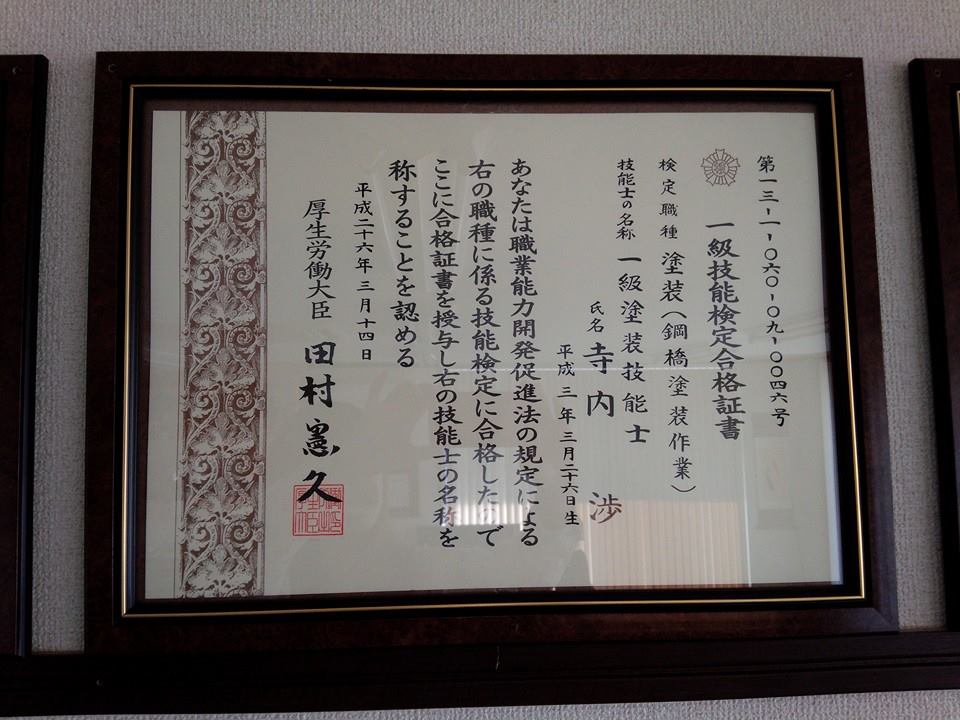 第一三-一-〇六〇-〇九-〇〇四六号
一級技能検定合格証書
検定職種 塗装(鋼橋塗装作業)
技能士の名称 一級塗装技能士
氏名 寺内 渉
平成三年三月二十六日生
あなたは職業能力開発促進法の規定による
右の職種に係る技能検定に合格したので
ここに合格証書を授与し右の技能士の名称を
称することを認める
平成二十六年三月十四日
厚生労働大臣 田村憲久